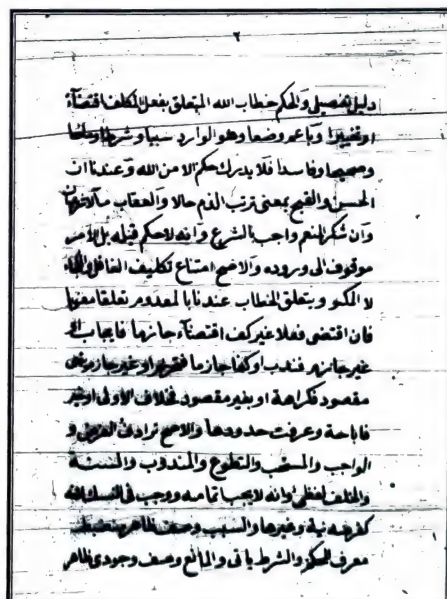 ٢
دليل تفصيلي والحكم خطاب الله المتعلق بفعل المكلف اقتضآء
او تخييرا وباعم وضعا وهو الوارد سببا وشرطا ومانعا
وصحيحا وفاسدا فلا يدرك حكم الا من الله وعندنا ان
الحسن والقبح بمعنى ترتب الذم حالا والعقاب مآلا شرعيان
وان شكر المنعم واجب بالشرع وانه لا حكم قبله بل الامر
موقوف الى وروده والاصح امتناع تكليف الغافل والملجاء
لا المكره ويتعلق الخطاب عندنا بالمعدوم تعلقا معنويا
فان اقتضى فعلا غير كف اقتضآء جازما فايجاب او
غير جازم فندب او كفا جازما فتحريم او غير جازم بنهى
مقصود فكراهة او بغير مقصود فخلاف الاولى او خير
فاباحة وعرفت حدودها والاصح ترادف الفرض و
الواجب والمستحب والتطوع والمندوب والسنة
والخلف لفظي وانه لا يجب اتمامه ووجب في النسك لانه
كفرضه نية وغيرها والسبب وصف ظاهر منضبط
معرف للحكم والشرط ياتى والمانع وصف وجودى ظاهر